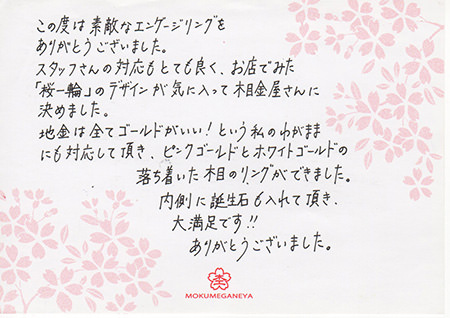 この度は素敵なエンゲージリングを
ありがとうございました。
スタッフさんの対応もとても良く、お店でみた
「桜一輪」のデザインが気に入って木目金屋さんに
決めました。
地金は全てゴールドがいい!という私のわがまま
にも対応して頂き、ピンクゴールドとホワイトゴールドの
落ち着いた木目のリングができました。
内側に誕生石も入れて頂き、
大満足です!!
ありがとうございました。
MOKUMEGANEYA